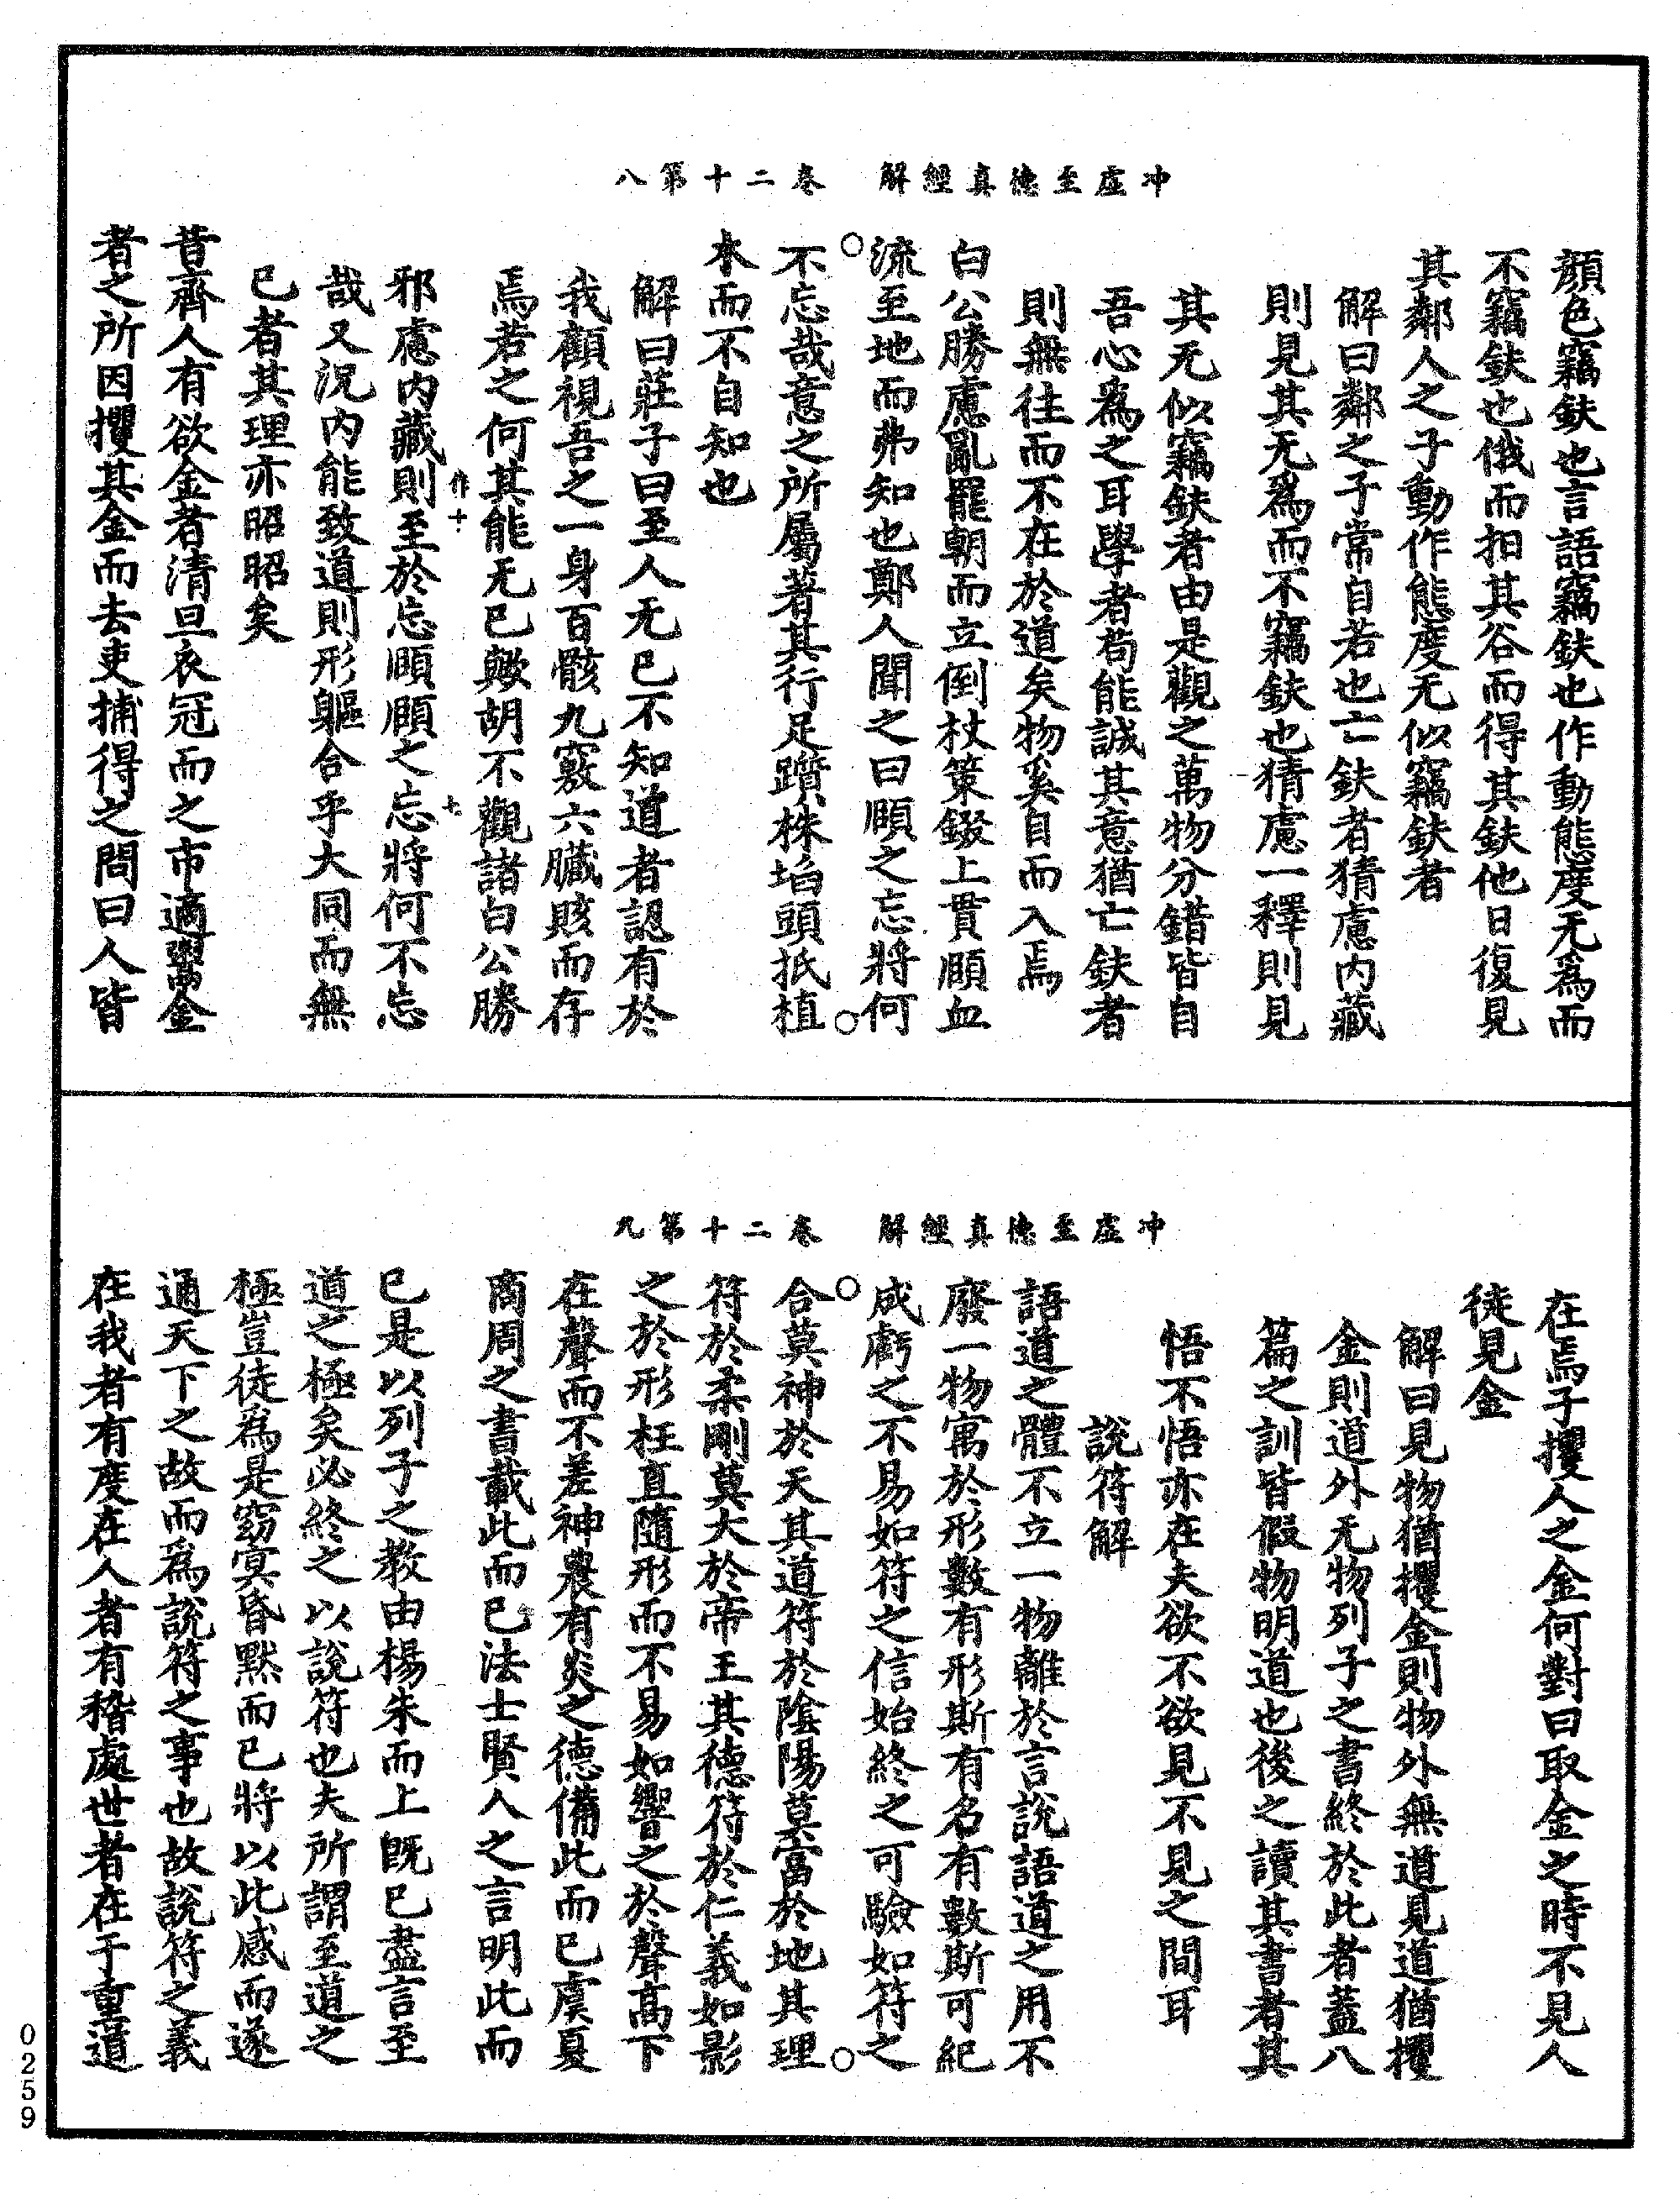 冲虛至德真經解　卷二十第八
顏色竊鈇也言語竊鈇也作動態度无爲而
不竊鈇也俄而抇其谷而得其鈇他日復見
其鄰人之子動作態度无似竊鈇者
解曰鄰之子常自若也亡鈇者猜慮內藏
則見其无爲而不竊鈇也猜慮一釋則見
其无似竊鈇者由是觀之萬物分錯皆自
吾心爲之耳學者苟能誠其意猶亡鈇者
則無往而不在於道矣物奚自而入焉
白公勝慮亂罷朝而立倒杖策錣上貫頤血
流至地而弗知也鄭人聞之曰頤之忘將何
不忘哉意之所屬著其行足躓株埳頭抵植
木而不自知也
解曰莊子曰至人无已不知道者認有於
我顧視吾之一身百骸九竅六臟賅而存
焉若之何其能无已歟胡不觀諸白公勝
作十　七
邪慮內藏則至於忘頤頤之忘將何不忘
哉又況內能致道則形軀合乎大同而無
已者其理亦昭昭矣
昔齊人有欲金者清旦衣冠而之市適鬻金
者之所因攫其金而去吏捕得之問曰人皆
冲虛至德真經解　卷二十第九
在焉子攫人之金何對曰取金之時不見人
徒見金
解曰見物猶攫金則物外無道見道猶攫
金則道外无物列子之書終於此者蓋八
篇之訓皆假物明道也後之讀其書者其
悟不悟亦在夫欲不欲見不見之間耳
說符解
語道之體不立一物離於言說語道之用不
廢一物寓於形數有形斯有名有數斯可紀
成虧之不易如符之信始終之可驗如符之
合莫神於天其道符於陰陽莫富於地其理
符於柔剛莫大於帝王其德符於仁義如影
之於形枉直隨形而不易如響之於聲高下
在聲而不差神農有炎之德備此而已虞夏
商周之書載此而已法士賢人之言明此而
已是以列子之教由楊朱而上旣已盡言至
道之極矣必終之以說符也夫所謂至道之
極豈徒爲是窈冥昏默而已將以此感而遂
通天下之故而爲說符之事也故說符之義
在我者有度在人者有稽處世者在于重道
0259